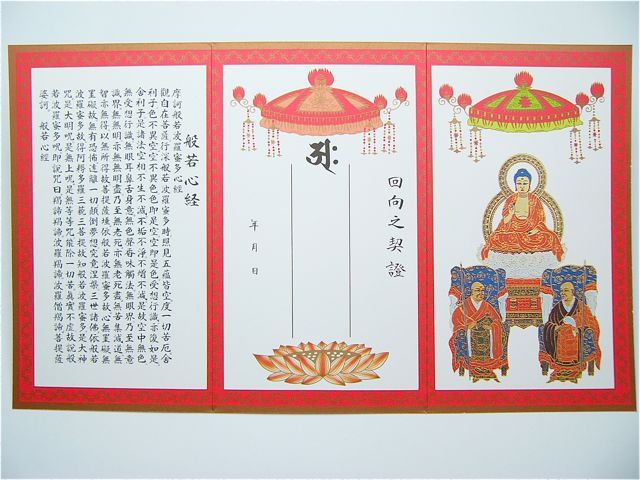 回向之契證
年月日
般若心経
摩訶般若波羅蜜多心経
觀自在菩薩行深般若波羅蜜多時照見五蘊皆空度一切苦厄舍
利子色不異空空不異色色即是空空即是色受想行識亦復如是
舍利子是諸法空相不生不滅不垢不淨不増不減是故空中無色
無受想行識無眼耳鼻舌身意無色聲香味觸法無眼界乃至無意
識界無無明亦無無明盡乃至無老死亦無老死盡無苦集滅道無
智亦無得以無所得故菩提薩埵依般若波羅蜜多故心無罣礙無
罣礙故無有恐怖遠離一切顛倒夢想究竟涅槃三世諸佛依般若
波羅蜜多故得阿耨多羅三藐三菩提故知般若波羅蜜多是大神
咒是大明咒是無上咒是無等等咒能除一切苦真實不虚故說般
若波羅蜜多咒即說咒曰羯諦羯諦波羅羯諦波羅僧羯諦菩提薩
婆訶 般若心経